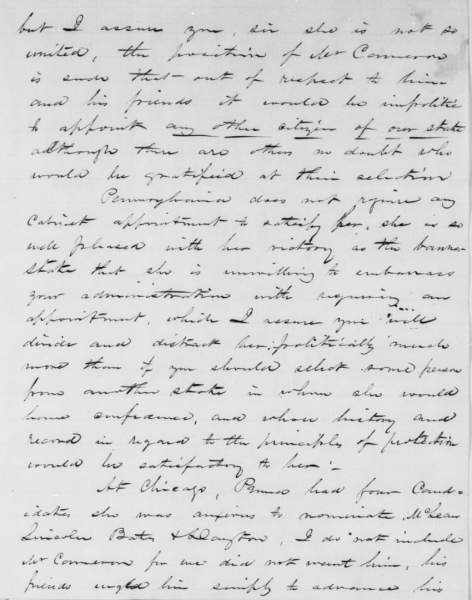 but I assure you, sir she is not so
united, the position of Mr Cameron
is such that out of respect to him
and his friends it would be impolitic
to appoint any other citizen of our state
although there are others no doubt who
would be gratified at their selection
Pennsylvania does not rquire any
Cabinet appointment to satisfy her, she is so
well pleased with her victory as the banner
state that she is unwilling to embarrass
your administration with requiring an
appointment, which I assure you will
divide and distract her politically much
more than if you should select some person
from another state in whom she would
have confidence, and whose history and
record in regard to the principles of protection
would be satisfactory to her:-
At Chicago, Penna had four Cand-
idates she was anxious to nominate McLean
Lincoln Bates & Dayton, I do not include
Mr Cameron for we did not want him, his
friends urged him simply to advance his